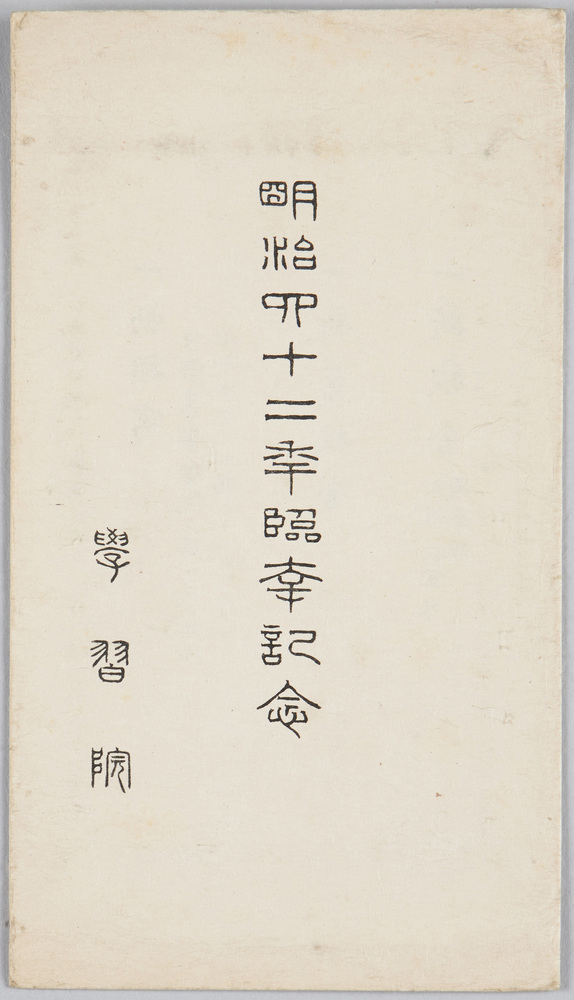 明治四十二年臨幸記念
學習院